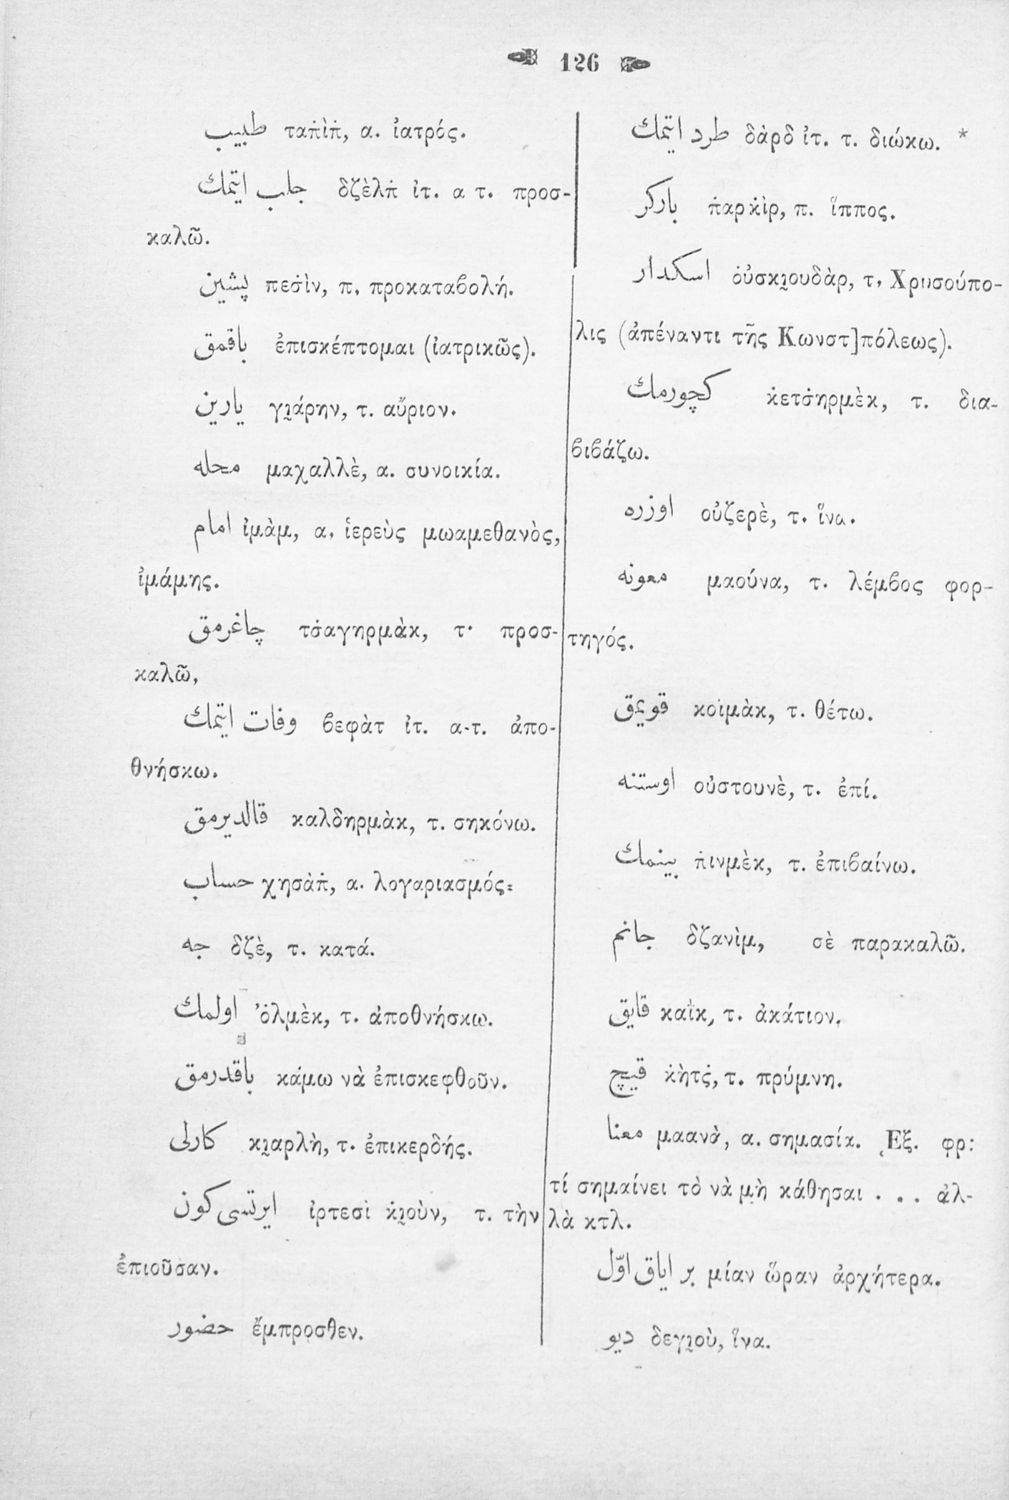 126
طبيب ταπὶπ, α. ἰατρός.
جلب ايتمك δζὲλπ ἰτ. α τ. προσ-
καλῶ.
پشين πεσὶν, π. προκαταβολή.
باقمق ἐπισκέπτομαι (ἰατρικῶς).
يارين γιάρην, τ. αὔριον.
محله μαχαλλὲ, α. συνοικία.
امام ἰμὰμ, α. ἱερεὺς μωαμεθανὸς,
ἰμάμης.
چاغرمق τσαγηρμὰκ, τ· προσ-
καλῶ,
وفات ايتمك βεφὰτ ἰτ. α-τ. ἀπο-
θνήσκω.
قالديرمق καλδηρμὰκ, τ. σηκόνω.
حساب χησὰπ, α. λογαριασμός:
جه δζὲ, τ. κατά.
اولمك ὀλμὲκ, τ. ἀποθνήσκω.
باقدرمق κάμω νὰ ἐπισκεφθοῦν.
كارلى κιαρλὴ, τ. ἐπικερδής.
ايرتسى كون ἰρτεσὶ κιοὺν, τ. τὴν
ἐπιοῦσαν.
حضور ἔμπροσθεν.
طرد ايتمك δὰρδ ἰτ. τ. διώκω. *
باركر παρκὶρ, π. ἵππος.
اسكدار οὐσκιουδὰρ, τ. Χρυσούπο-
λις (ἀπέναντι τῆς Κωνστ]πόλεως).
كچورمك κετσηρμὲκ, τ. δια-
βιβάζω.
اوزره οὐζερὲ, τ. ἵνα.
معونه μαούνα, τ. λέμβος φορ-
τηγός.
قويمق κοϊμὰκ, τ. θέτω.
اوستنه οὐστουνὲ, τ. ἐπί.
بينمك πινμὲκ, τ. ἐπιβαίνω.
جانم δζανὶμ, σὲ παρακαλῶ.
قايق καΐκ, τ. ἀκάτιον.
قيچ κὴτς, τ. πρύμνη.
معنا μαανὰ, α. σημασία. Ἐξ. φρ:
τί σημαίνει τὸ νὰ μὴ κάθησαι . . . ἀλ-
λὰ κτλ.
بر اياق اوّل μίαν ὥραν ἀρχήτερα.
ديو δεγιοὺ, ἵνα.